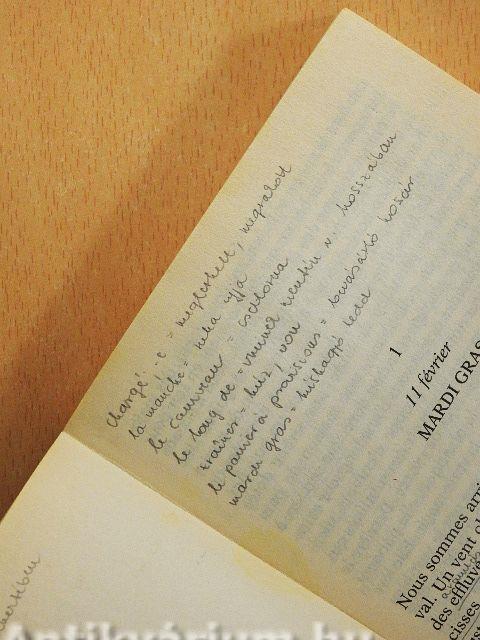 chargé, -e = megterhelt, megrakott
la manche = ruha ujja
le caniveau = csatorna
le long de = vmivel mentén v. hosszában
traîner = húz, von
le panier à provisions = bevásárló kosár
mardi gras = húshagyó kedd
1
11 février
MARDI GRAS
Nous sommes arri
val. Un vent d
des effluve
cisses
Antikvárium.hu